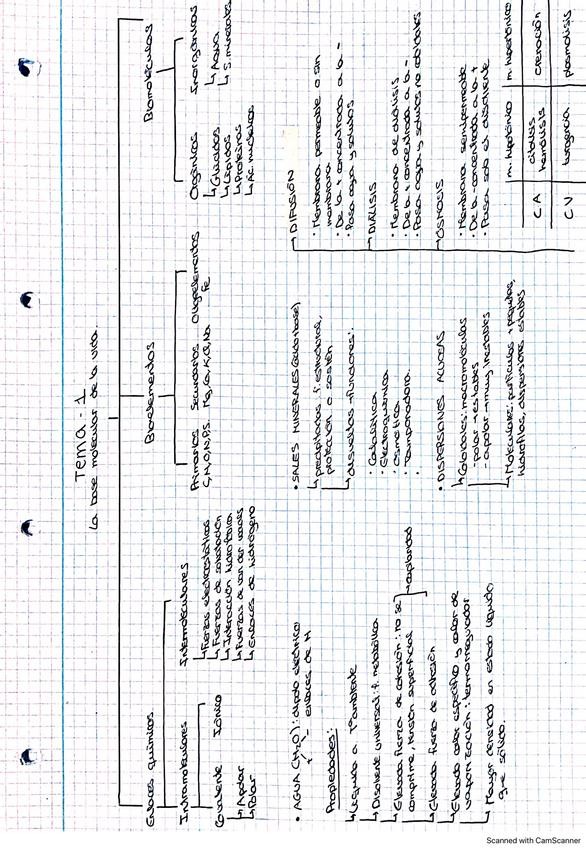 Tema - 1
La base molecular de la vida.
Enlaces químicos
Intramoleculares
Covalente
Iónico
↳ Apolar
↳ Polar
Intermoleculares
↳ Fuerzas electrostáticas
↳ Fuerzas de solvatación
↳ Interacción hidrofóbica
↳ Fuerzas de van der Waals
↳ Enlaces de hidrógeno
Bioelementos
Primarios
Secundarios
Oligoelementos
C,H,O,N,P,S.
Mg,Ca,K,Cl,Na
Fe
Biomoléculas
Orgánicas
↳ Glúcidos
↳ Lípidos
↳ Proteínas
↳ Ac. nucleicos
Inorgánicas
↳ Agua
↳ S. minerales
• AGUA (H₂O): dipolo eléctrico
+ -
enlaces de H
Propiedades:
↳ Líquida a Tª ambiente
↳ Disolvente universal: f. metabólica
↳ Elevada fuerza de cohesión: no se
comprime, tensión superficial
↳ Elevada fuerza de adhesión
→ capilaridad
↳ Elevado calor específico y calor de
vaporización: termorregulador
↳ Mayor densidad en estado líquido
que sólido.
• SALES MINERALES (ácido + base)
↳ precipitadas: f. estructural,
protección o sostén
↳ disueltas → funciones:
· Catalítica
· Electroquímica
· Osmótica
· Tamponadora.
• DISPERSIONES ACUOSAS
↳ Coloidales: macromoléculas
- polar → estables
- apolar → muy inestables
↳ Moleculares: partículas + pequeñas,
hidrófilas, dispersiones estables
→ DIFUSIÓN
· Membrana permeable o sin
membrana
· De la + concentrada a la -
· Pasa agua y solutos
→ DIÁLISIS
· Membrana de diálisis
· De la + concentrada a la -
· Pasan agua y solutos no coloidales
→ ÓSMOSIS
· Membrana semipermeable
· De la - concentrada a la +
· Pasa solo el disolvente
m. hipotónico
m. hipertónico
C A
citolisis
hemólisis
crenación
C V
turgencia
plasmolisis
Scanned with CamScanner